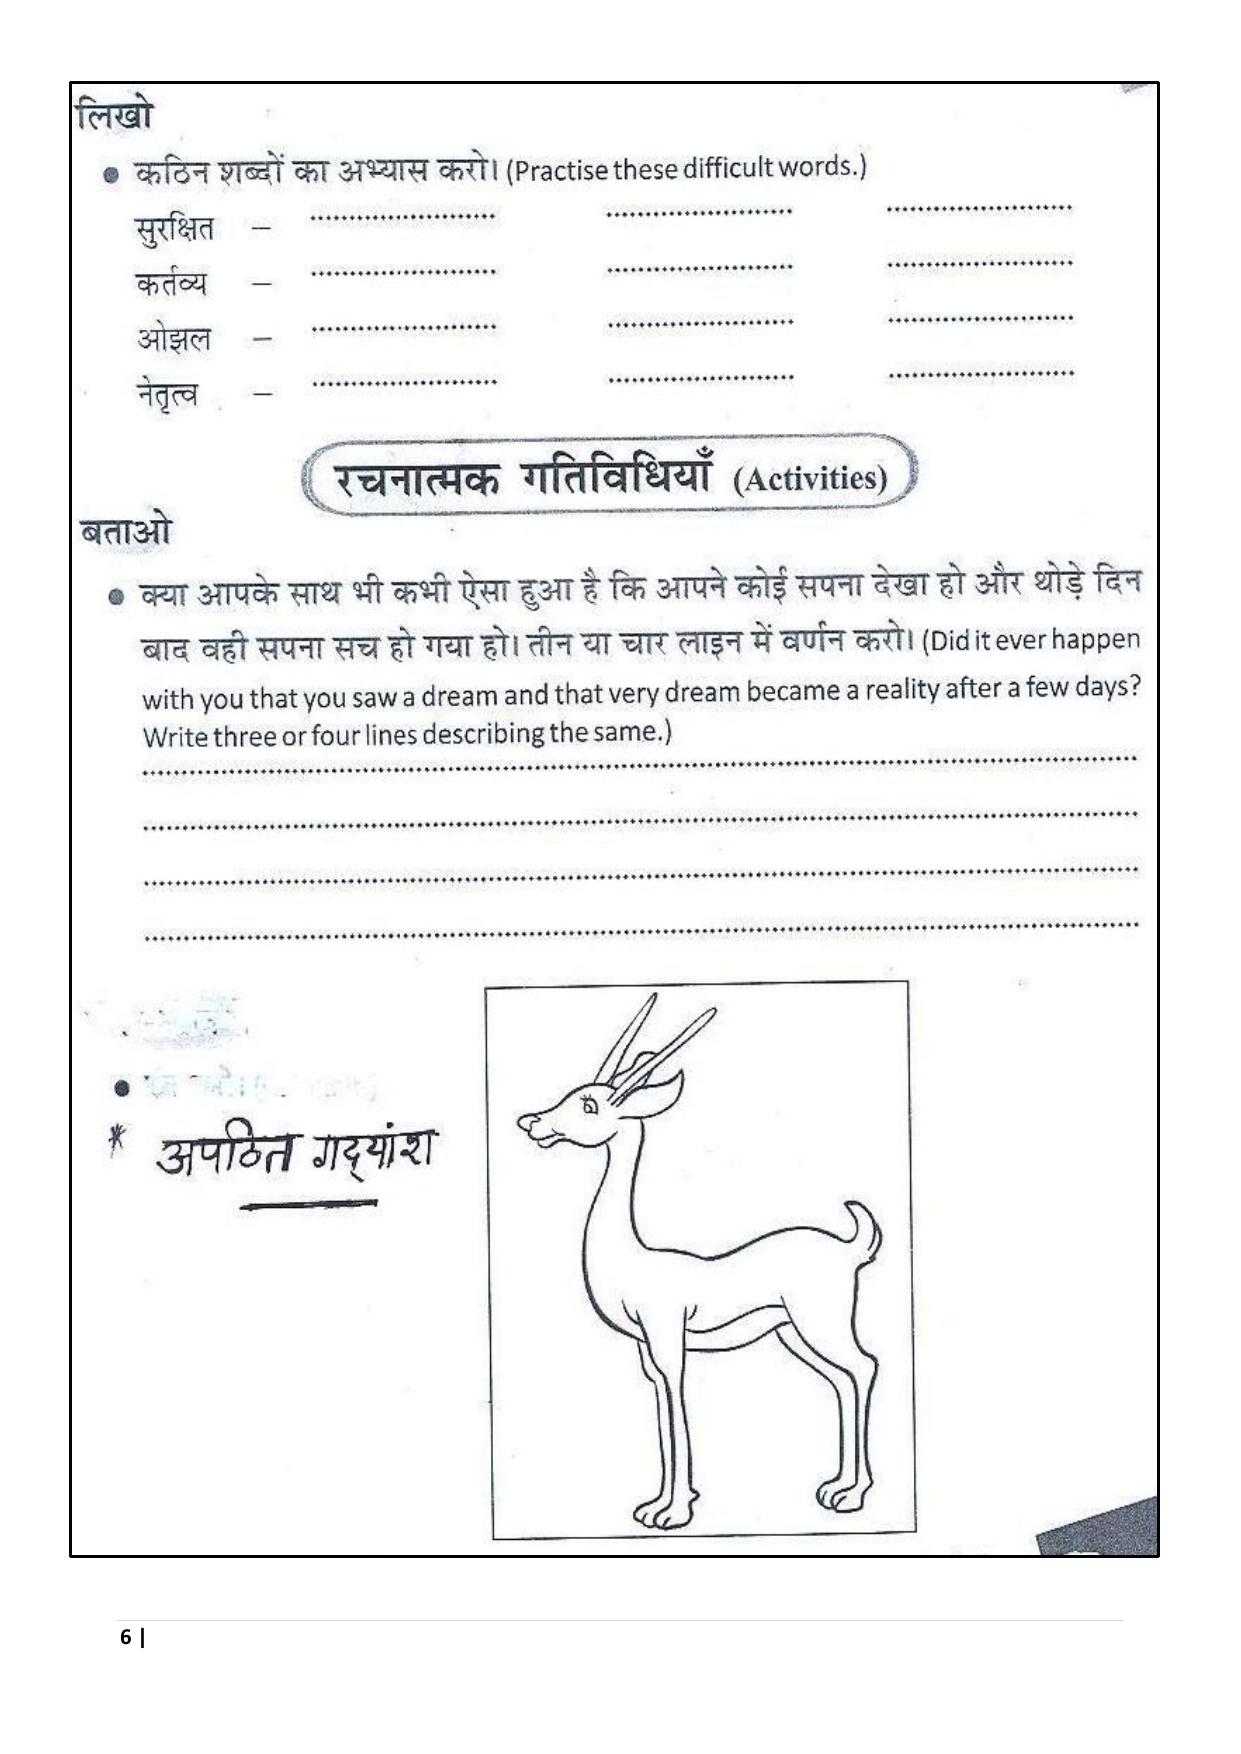 लिखो
● कठिन शब्दों का अभ्यास करो। (Practise these difficult words.)
सुरक्षित – ........................ ........................ ........................
कर्तव्य – ........................ ........................ ........................
ओझल – ........................ ........................ ........................
नेतृत्व – ........................ ........................ ........................
रचनात्मक गतिविधियाँ (Activities)
बताओ
● क्या आपके साथ भी कभी ऐसा हुआ है कि आपने कोई सपना देखा हो और थोड़े दिन
बाद वही सपना सच हो गया हो। तीन या चार लाइन में वर्णन करो। (Did it ever happen
with you that you saw a dream and that very dream became a reality after a few days?
Write three or four lines describing the same.)
* अपठित गद्‌यांश
6 |